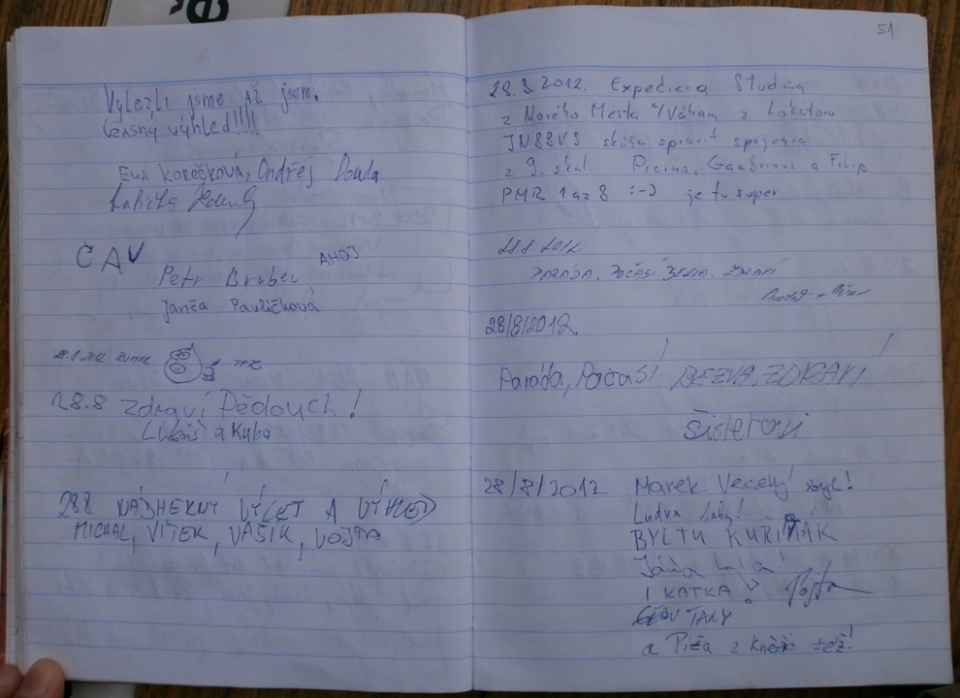 Vylezli jsme až jsem.
ÚŽASNÝ VÝHLED!!!!
EVA KOREČKOVÁ, ONDŘEJ Douda
ČAU
AHOJ
Petr Brabec
Janča Pavlíčková
28.8 Zdraví Dědouch!
Lukáš a Kuba
28.8 NÁDHERNÝ VÝLET A VÝHLED
MICHAL, VÍTEK, VAŠÍK, VOJTA
51
28.8.2012. Expedícia Studňa
z Nového Mesta n/Váhom z
JN88VS skúša spraviť spojenia
z 9. skál. Picino, Gambrinus a Filip
PMR 1 až 8 :-) je tu super
28.8.2012
PARÁDA, POČASÍ BEZVA. ZDRAVÍ
28/8/2012
Paráda, Počasí BEZVA, ZDRAVÍ
Šisterovi
28/8/2012 Marek Vecený byl!
BYL TU KUŘIMÁK
Jána byla!
I KATKA!
TAKY
a Píža z též!